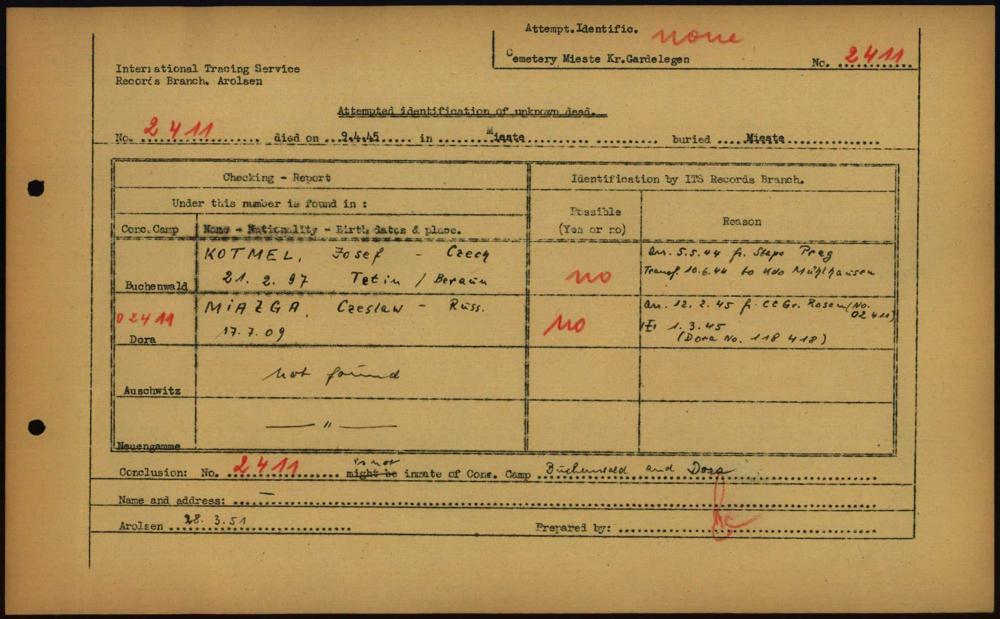 Attempt.Identific. none
Cemetery Mieste Kr.Gardelegen No. 2411
International Tracing Service
Records Branch. Arolsen
Attempted identification of unknown dead.
No. 2411 died on 9.4.45 in Mieste buried Mieste
Checking - Report Identification by ITS Records Branch.
Under this number is found in :
Conc.Camp Name - Nationality - Birth dates & place. Possible (Yes or no) Reason
Buchenwald KOTMEL, Josef - Czech no arr. 5.5.44 fr. Stapo Prag
21.2.97 Tetin / Beraun Transf. 10.6.44 to Kdo Mühlhausen
02411 Dora MIAZGA, Czeslaw - Russ. no arr. 12.2.45 f. CC Gr. Rosen (No. 02411)
17.7.09 1.3.45
(Dora No. 118 418)
Auschwitz not found
Neuengamme — " —
Conclusion: No. 2411 might be is not inmate of Conc. Camp Buchenwald and Dora
Name and address: —
Arolsen 28.3.51 Prepared by: